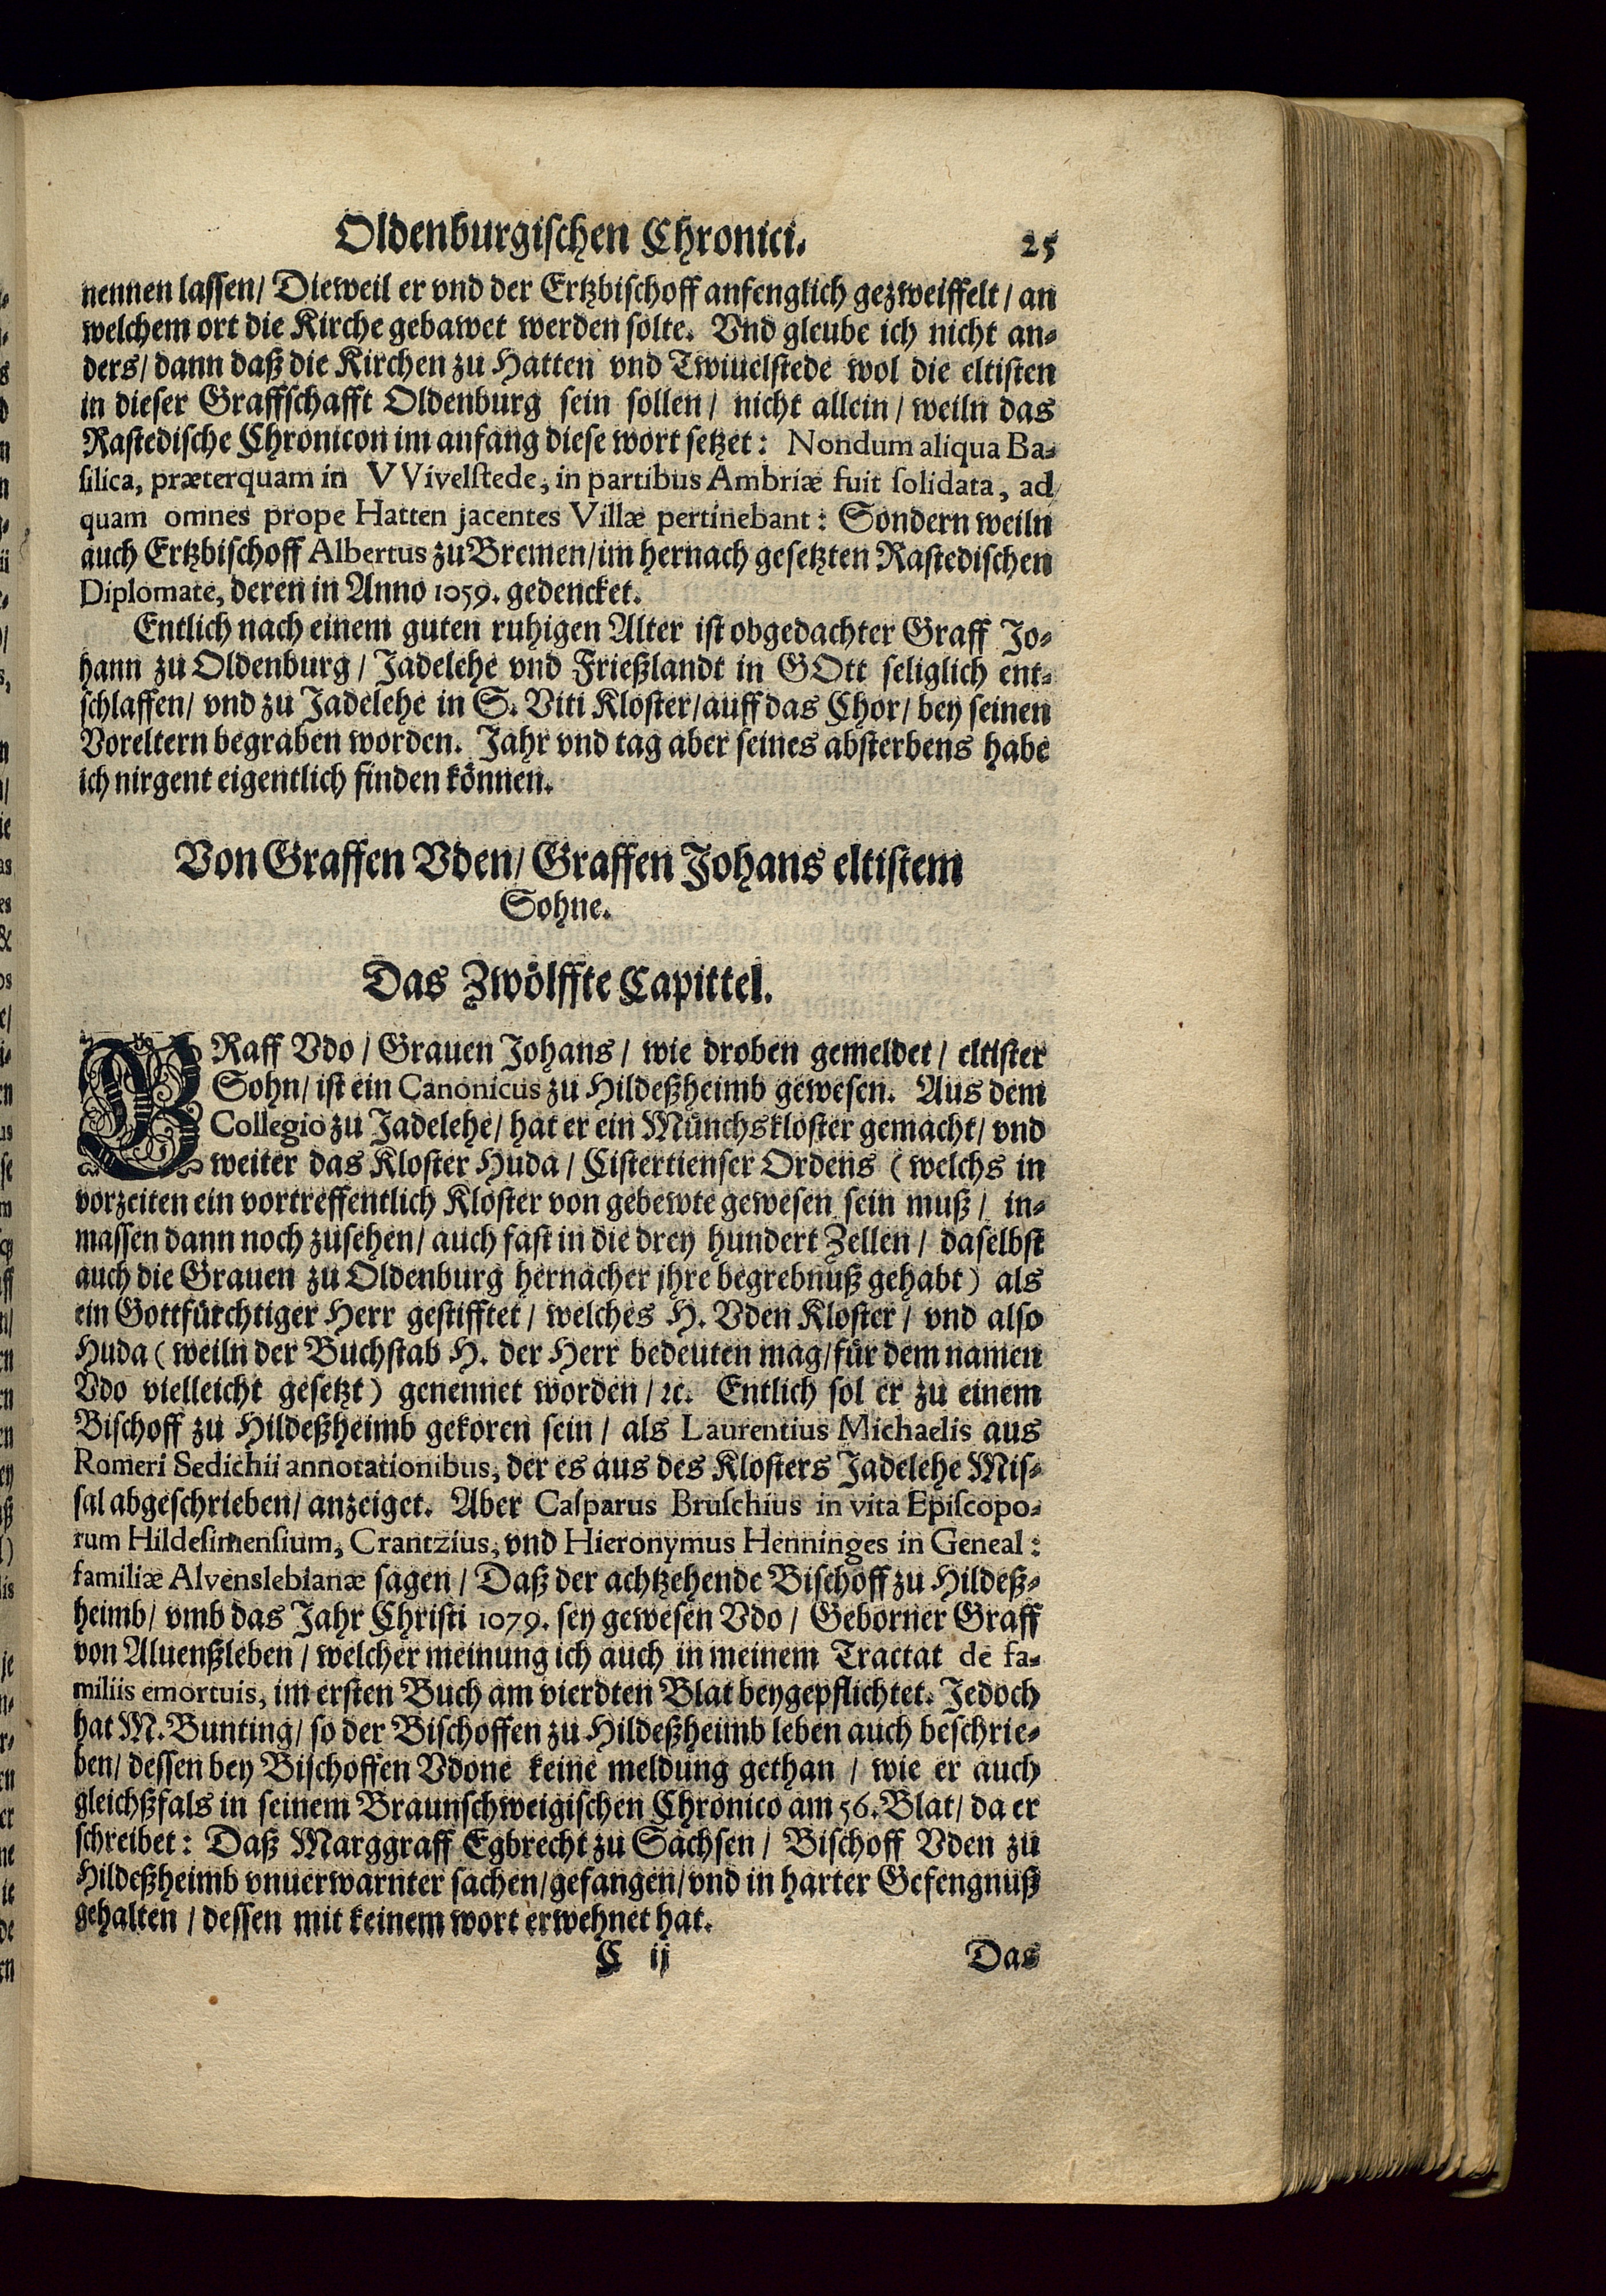 Oldenburgischen Chronici. 25
nennen lassen/ Dieweil er vnd der Ertzbischoff anfenglich gezweiffelt/ an
welchem ort die Kirche gebawet werden solte. Vnd gleube ich nicht an⸗
ders/ dann daß die Kirchen zu Hatten vnd Twiuelstede wol die eltisten
in dieser Graffschafft Oldenburg sein sollen/ nicht allein/ weiln das
Rastedische Chronicon im anfang diese wort setzet: Nondum aliqua Ba⸗
silica, præterquam in VVivelstede, in partibus Ambriæ fuit solidata, ad
quam omnes prope Hatten jacentes Villæ pertinebant: Sondern weiln
auch Ertzbischoff Albertus zu Bremen/ im hernach gesetzten Rastedischen
Diplomate, deren in Anno 1059. gedencket.
Entlich nach einem guten ruhigen Alter ist obgedachter Graff Jo⸗
hann zu Oldenburg/ Jadelehe vnd Frießlandt in GOtt seliglich ent⸗
schlaffen/ vnd zu Jadelehe in S. Viti Kloster/ auff das Chor/ bey seinen
Voreltern begraben worden. Jahr vnd tag aber seines absterbens habe
ich nirgent eigentlich finden können.
Von Graffen Vden/ Graffen Johans eltistem
Sohne.
Das Zwölffte Capittel.
GRaff Vdo/ Grauen Johans/ wie droben gemeldet/ eltister
Sohn/ ist ein Canonicus zu Hildeßheimb gewesen. Aus dem
Collegio zu Jadelehe/ hat er ein Münchskloster gemacht/ vnd
weiter das Kloster Huda/ Cistertienser Ordens (welchs in
vorzeiten ein vortreffentlich Kloster von gebewte gewesen sein muß/ in⸗
massen dann noch zusehen/ auch fast in die drey hundert Zellen/ daselbst
auch die Grauen zu Oldenburg hernacher jhre begrebnuß gehabt) als
ein Gottfürchtiger Herr gestifftet/ welches H. Vden Kloster/ vnd also
Huda (weiln der Buchstab H. der Herr bedeuten mag/ für dem namen
Vdo vielleicht gesetzt) genennet worden/ ꝛc. Entlich sol er zu einem
Bischoff zu Hildeßheimb gekoren sein/ als Laurentius Michaelis aus
Romeri Sedichii annotationibus, der es aus des Klosters Jadelehe Mis⸗
sal abgeschrieben/ anzeiget. Aber Casparus Bruschius in vita Episcopo⸗
rum Hildesimensium, Crantzius, vnd Hieronymus Henninges in Geneal:
familiæ Alvenslebianæ sagen/ Daß der achtzehende Bischoff zu Hildeß⸗
heimb/ vmb das Jahr Christi 1079. sey gewesen Vdo/ Geborner Graff
von Aluenßleben/ welcher meinung ich auch in meinem Tractat de fa⸗
miliis emortuis, im ersten Buch am vierdten Blat beygepflichtet. Jedoch
hat M. Bunting/ so der Bischoffen zu Hildeßheimb leben auch beschrie⸗
ben/ dessen bey Bischoffen Vdone keine meldung gethan/ wie er auch
gleichßfals in seinem Braunschweigischen Chronico am 56. Blat/ da er
schreibet: Daß Marggraff Egbrecht zu Sachsen/ Bischoff Vden zu
Hildeßheimb vnuerwarnter sachen/ gefangen/ vnd in harter Gefengnuß
gehalten/ dessen mit keinem wort erwehnet hat.
C ij Das